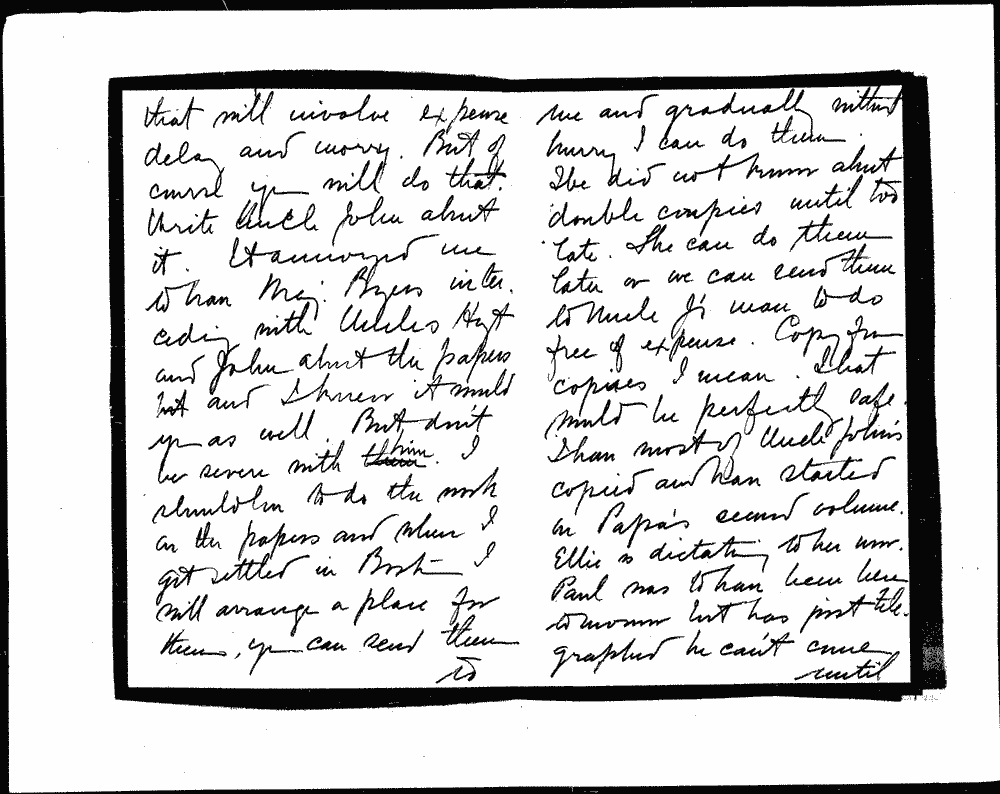 that will involve expense
delay and worry. But of
course you will do that.
Write Uncle John about
it. It annoyed me
to have Maj. Byers inter.
ceding with Uncles Hoyt
and John about the papers
but and I knew it would
you as well. But don't
be severe with them him. I
should be to do the work
on the papers and when I
get settled in Boston I
will arrange a place for
them, you can send them
to
me and gradually without
hurry I can do them.
She did not know about
double coupies until too
late. She can do them
later or we can send them
to Uncle J's man to do
free of expense. Copy from
copies I mean. That
would be perfectly safe.
I have most of Uncle John's
copied and have started
on Papa's second volume.
Ellie is dictating to her now.
Paul was to have been here
tomorrow but has just tele.
graphed he can't come
until